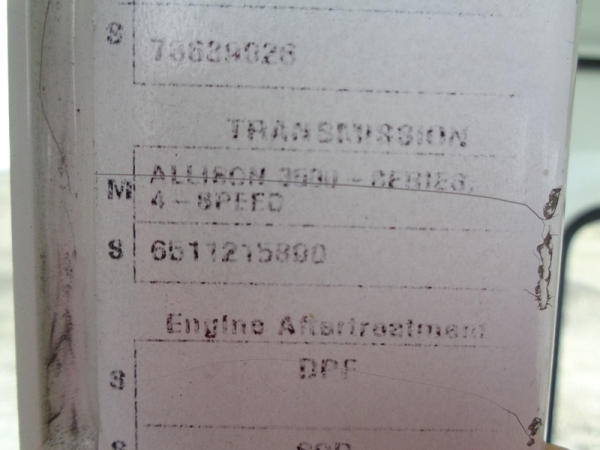 S
76639026
TRANSMISSION
M ALLISON 3000 - SERIES,
4-SPEED
S 6511215890
Engine Aftertreatment
S DPF
S SCR